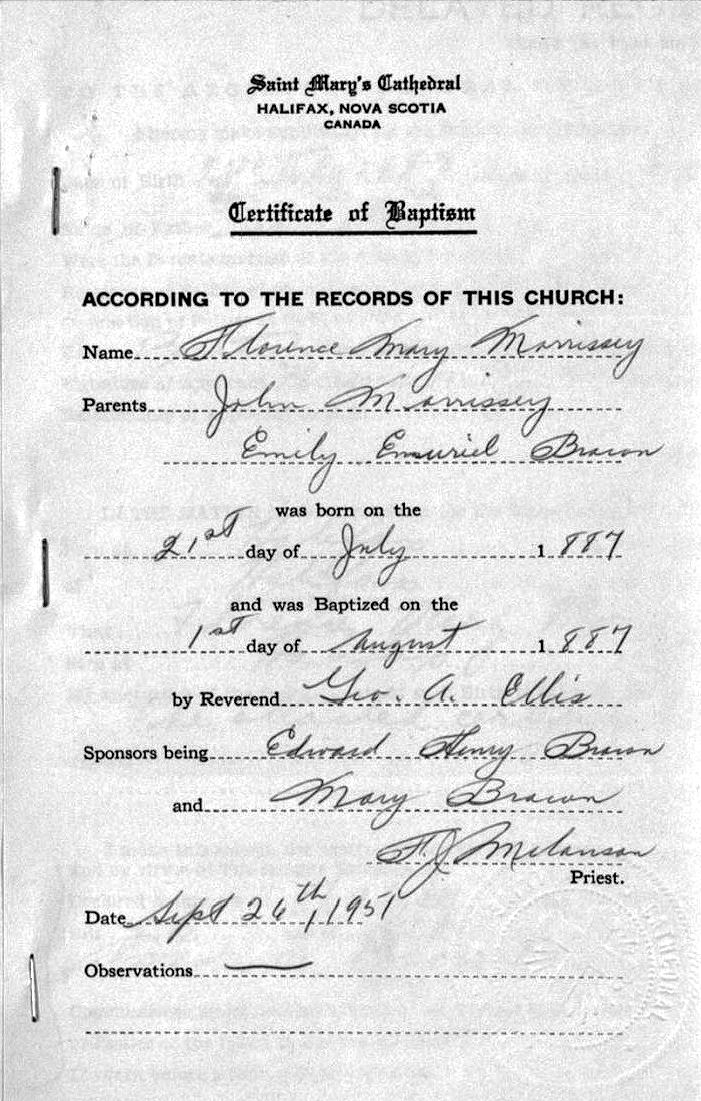 Saint Mary's Cathedral
HALIFAX, NOVA SCOTIA
CANADA
Certificate of Baptism
ACCORDING TO THE RECORDS OF THIS CHURCH:
Name Florence Mary Morrissey
Parents John Morrissey
Emily Bracon
was born on the
21st day of July 1887
and was Baptized on the
1st day of August 1887
by Reverend Geo. A. Ellis
Sponsors being Edward Henry Bracon
and Mary Bracon
F J Melanson
Priest.
Date Sept 26th, 1951
Observations —